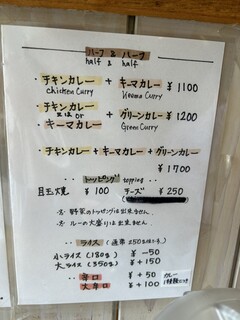 ハーフ & ハーフ
half & half
・チキンカレー + キーマカレー ¥1100
chicken curry Keema Curry
・チキンカレー
又は or + グリーンカレー ¥1200
・キーマカレー Green Curry
・チキンカレー + キーマカレー + グリーンカレー
¥1700
トッピング topping
目玉焼 ¥100 チーズ ¥250
※ 野菜のトッピングは出来ません
※ ルーの大盛りは出来ません
ライス (通常 250g)
小ライス (180g) ¥ -50
大ライス (350g) ¥ +150
辛口 +50 カレー
大辛口 +100 1種類につき